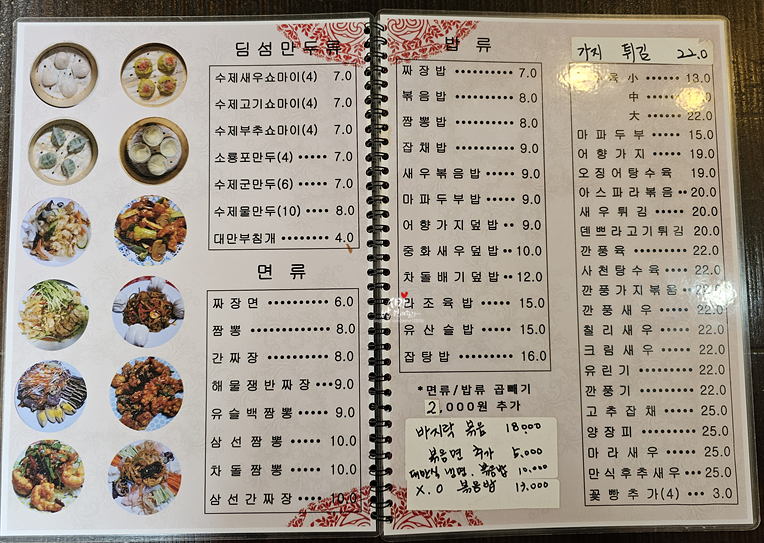 딤섬만두류
수제새우쇼마이(4) 7.0
수제고기쇼마이(4) 7.0
수제부추쇼마이(4) 7.0
소룡포만두(4) ····· 7.0
수제군만두(6) ····· 7.0
수제물만두(10) ···· 8.0
대만부침개 ········ 4.0
면 류
짜장면 ·········· 6.0
짬뽕 ············ 8.0
간짜장 ·········· 8.0
해물쟁반짜장 ···9.0
유슬백짬뽕 ····· 9.0
삼선짬뽕 ····· 10.0
차돌짬뽕 ····· 10.0
삼선간짜장 ···· 10.0
밥 류
짜장밥 ·········· 7.0
볶음밥 ·········· 8.0
짬뽕밥 ·········· 8.0
잡채밥 ·········· 9.0
새우볶음밥 ····· 9.0
마파두부밥 ····· 9.0
어향가지덮밥 ·· 9.0
중화새우덮밥 ·· 10.0
차돌배기덮밥 ·· 12.0
라조육밥 ····· 15.0
유산슬밥 ····· 15.0
잡탕밥 ········ 16.0
*면류/밥류 곱빼기
2.000원 추가
바지락 볶음 18.000
볶음면 추가 5.000
대만식 냉면. 볶음밥 10.000
X.O 볶음밥 13.000
가지 튀김 22.0
육 小 ······ 13.0
中
大 ······ 22.0
마파두부 ····· 15.0
어향가지 ····· 19.0
오징어탕수육 19.0
아스파라볶음 ·· 20.0
새우튀김 ····· 20.0
덴뿌라고기튀김 20.0
깐풍육 ········ 22.0
사천탕수육 ···· 22.0
깐풍가지볶음 ·· 22.0
깐풍새우 ····· 22.0
칠리새우 ····· 22.0
크림새우 ····· 22.0
유린기 ········ 22.0
깐풍기 ········ 22.0
고추잡채 ····· 25.0
양장피 ········ 25.0
마라새우 ····· 25.0
만식후추새우 ·· 25.0
꽃빵추가(4) ··· 3.0